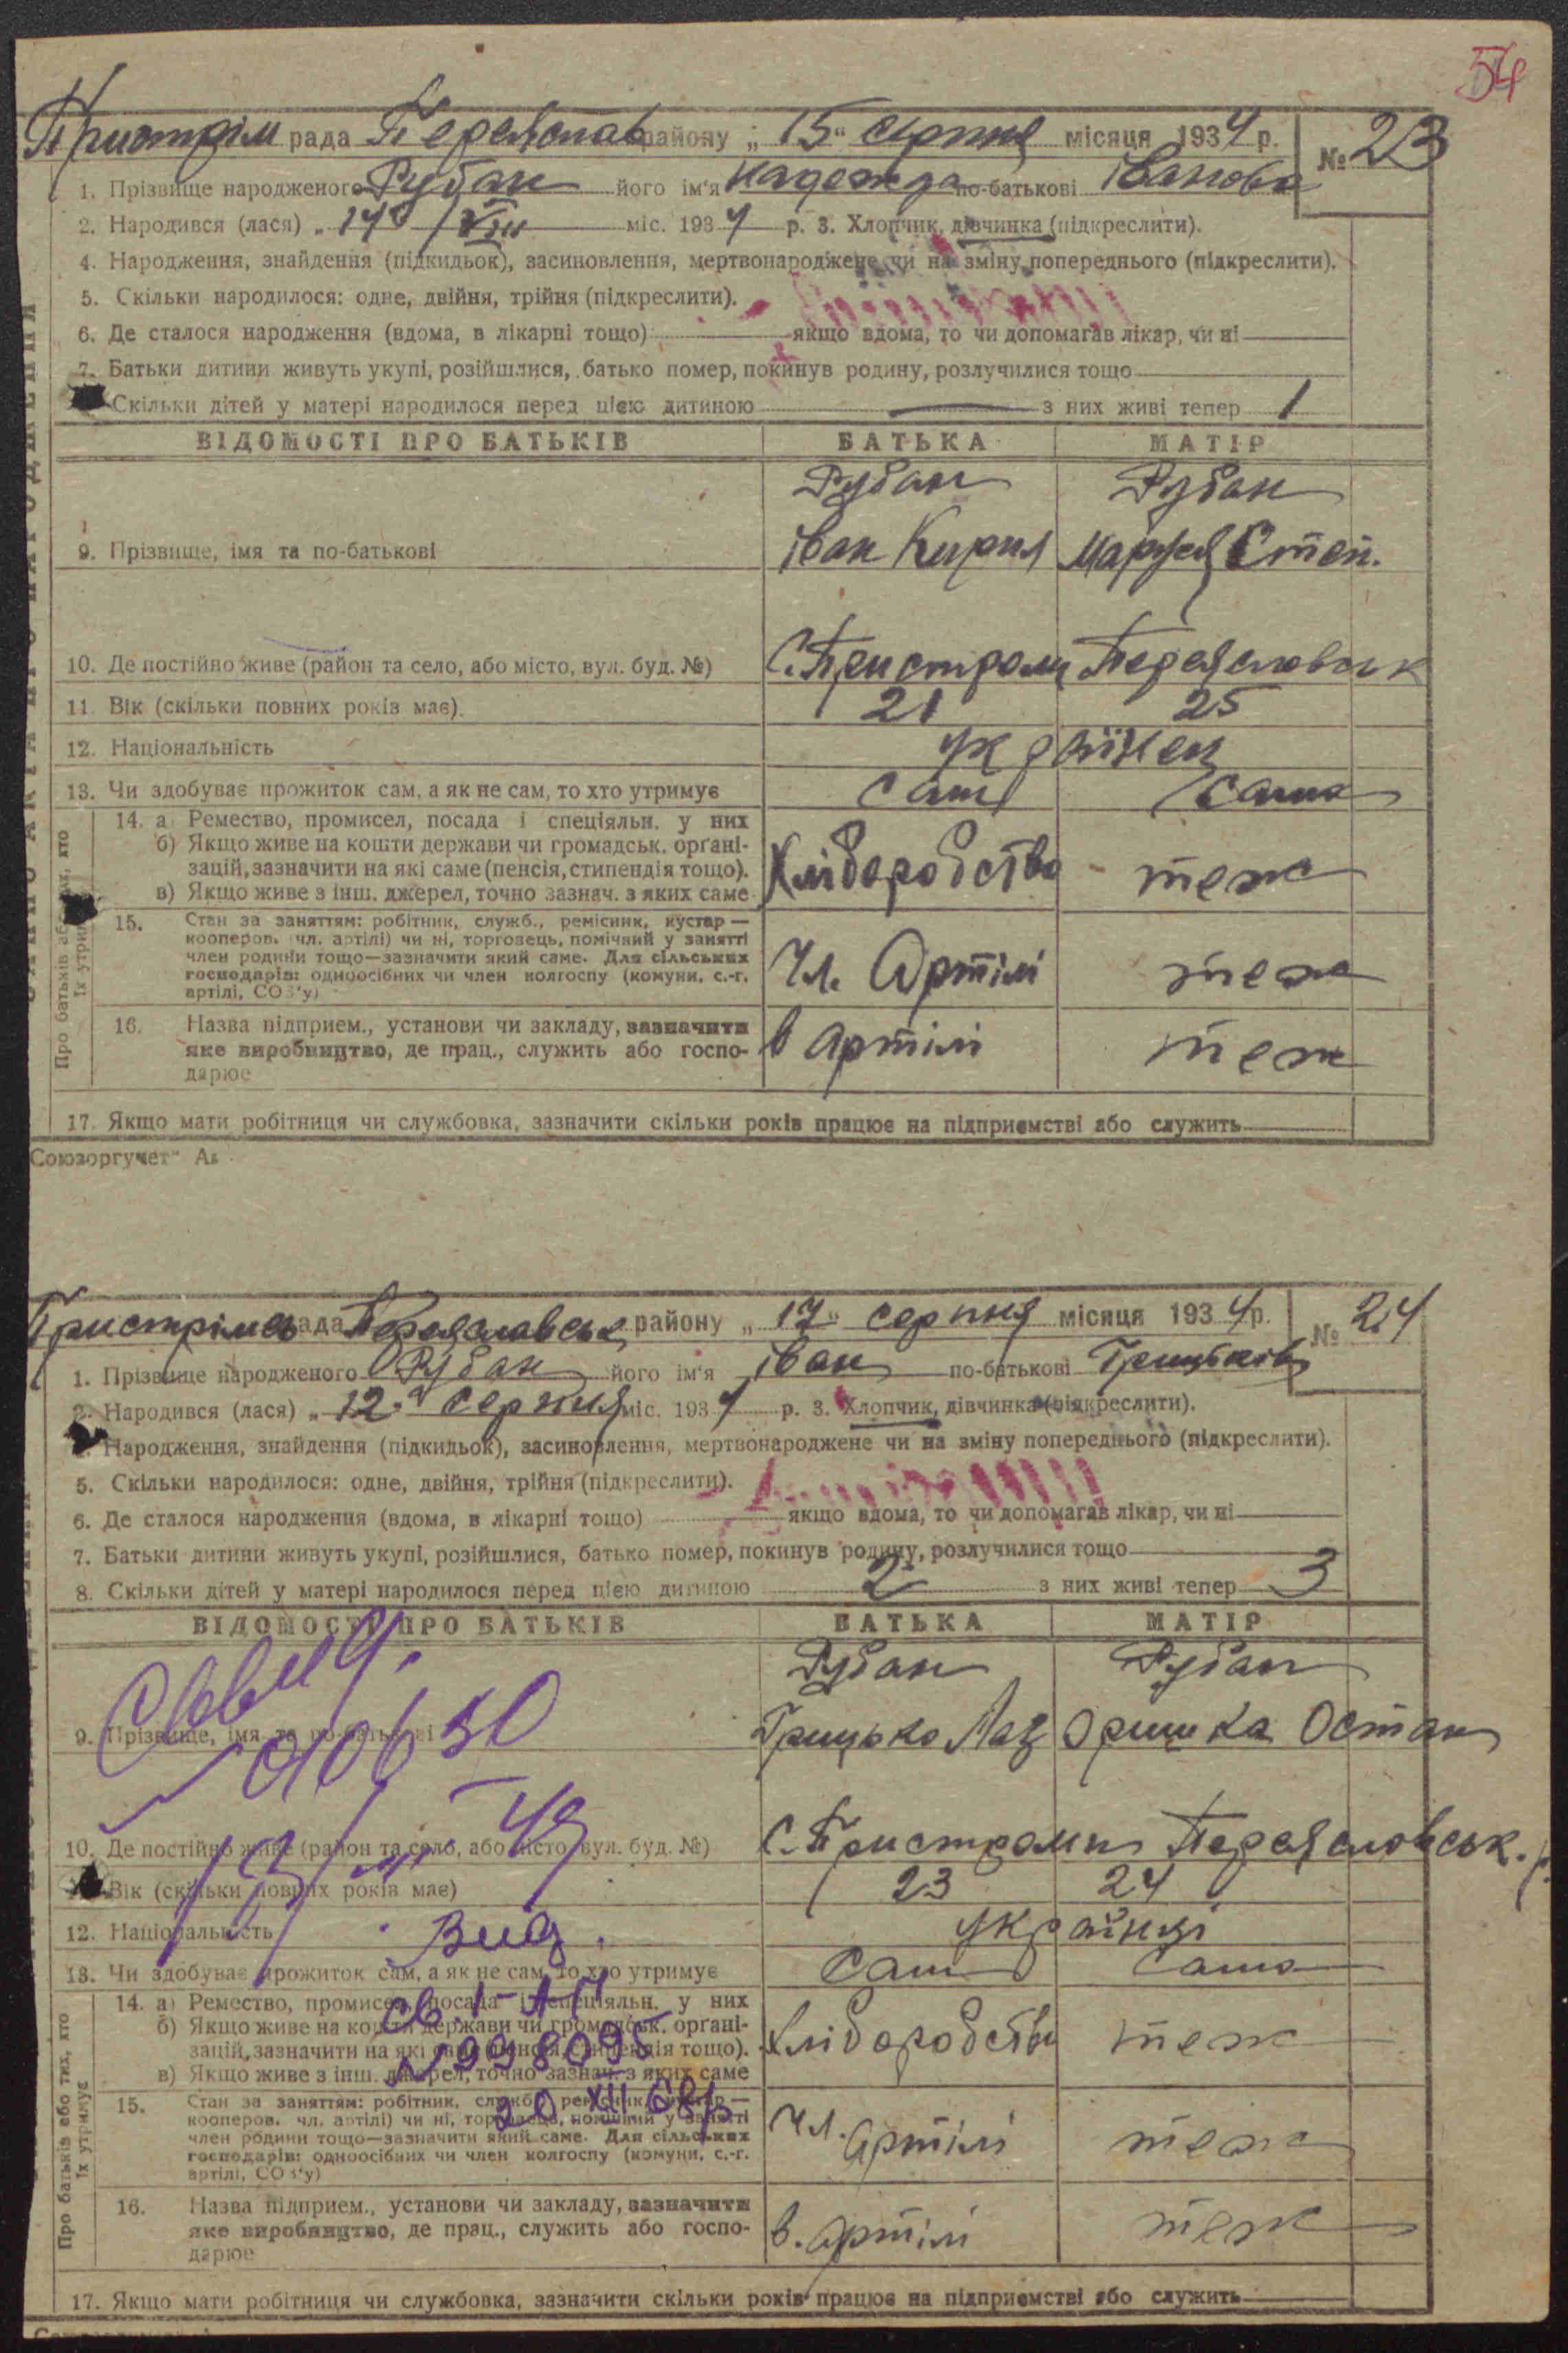 54
Пристрім рада Переяслав району „ 15 " серпня місяця 1934 р. № 23
1. Прізвище народженого Рубан його ім'я Надежда по-батькові Іванова
2. Народився (лася) „ 14" / VIII міс. 1934 р. 3. Хлопчик, дівчинка (підкреслити).
4. Народження, знайдення (підкидьок), засиновлення, мертвонароджене чи на зміну попереднього (підкреслити).
5. Скільки народилося: одне, двійня, трійня (підкреслити).
6. Де сталося народження (вдома, в лікарні тощо) якщо вдома, то чи допомагав лікар, чи ні
7. Батьки дитини живуть укупі, розійшлися, батько помер, покинув родину, розлучилися тощо
Скільки дітей у матері народилося перед цією дитиною — з них живі тепер 1
ВІДОМОСТІ ПРО БАТЬКІВ БАТЬКА МАТІР
Рубан Рубан
9. Прізвище, імя та по-батькові Іван Кирил Маруся Степ.
10. Де постійно живе (район та село, або місто, вул. буд. №) С. Пристроми Переяславськ
11. Вік (скільки повних років має). 21 25
12. Національність українец
13. Чи здобуває прожиток сам, а як не сам, то хто утримує сам сама
14. а) Ремество, промисел, посада і спеціяльн. у них
б) Якщо живе на кошти держави чи громадськ. орґані-
зацій, зазначити на які саме (пенсія, стипендія тощо).
в) Якщо живе з інш. джерел, точно зазнач. з яких саме
Хліборобство теж
15. Стан за заняттям: робітник, служб., ремісник, кустар —
кооперов. (чл. артілі) чи ні, торговець, помічний у занятті
член родини тощо—зазначити який саме. Для сільських
господарів: одноосібних чи член колгоспу (комуни, с.-г.
артілі, СОЗ'у)
Чл. Артілі теж
16. Назва підприєм., установи чи закладу, зазначити
яке виробництво, де прац., служить або госпо-
дарює
в артілі теж
17. Якщо мати робітниця чи службовка, зазначити скільки років працює на підприємстві або служить
Союзоргучет"
Пристрімсь рада Переяславськ району „ 17 " серпня місяця 1934 р. № 24
1. Прізвище народженого Рубан його ім'я Іван по-батькові Грицьків
2. Народився (лася) „ 12 " серпня міс. 1934 р. 3. Хлопчик, дівчинка (підкреслити).
Народження, знайдення (підкидьок), засиновлення, мертвонароджене чи на зміну попереднього (підкреслити).
5. Скільки народилося: одне, двійня, трійня (підкреслити).
6. Де сталося народження (вдома, в лікарні тощо) якщо вдома, то чи допомагав лікар, чи ні
7. Батьки дитини живуть укупі, розійшлися, батько помер, покинув родину, розлучилися тощо
8. Скільки дітей у матері народилося перед цією дитиною 2 з них живі тепер 3
ВІДОМОСТІ ПРО БАТЬКІВ БАТЬКА МАТІР
Рубан Рубан
9. Прізвище, імя та по-батькові Грицько Лаз Оришка Остап
10. Де постійно живе (район та село, або місто, вул. буд. №) С. Пристроми Переяславськ. р.
Вік (скільки повних років має) 23 24
12. Національність українці
Вид.
13. Чи здобуває прожиток сам, а як не сам, то хто утримує сам сама
14. а) Ремество, промисел, посада і спеціяльн. у них
б) Якщо живе на кошти держави чи громадськ. орґані-
зацій, зазначити на які саме (пенсія, стипендія тощо).
в) Якщо живе з інш. джерел, точно зазнач. з яких саме
Хліборобств теж
Св. I-АП
№ 998095
20 XII 68р
15. Стан за заняттям: робітник, служб., ремісник, кустар —
кооперов. чл. артілі) чи ні, торговець, помічний у занятті
член родини тощо—зазначити який саме. Для сільських
господарів: одноосібних чи член колгоспу (комуни, с.-г.
артілі, СОЗ'у)
Чл. артілі теж
16. Назва підприєм., установи чи закладу, зазначити
яке виробництво, де прац., служить або госпо-
дарює
в. артілі теж
Про батьків або тих, хто
їх утримує
17. Якщо мати робітниця чи службовка, зазначити скільки років працює на підприємстві або служить